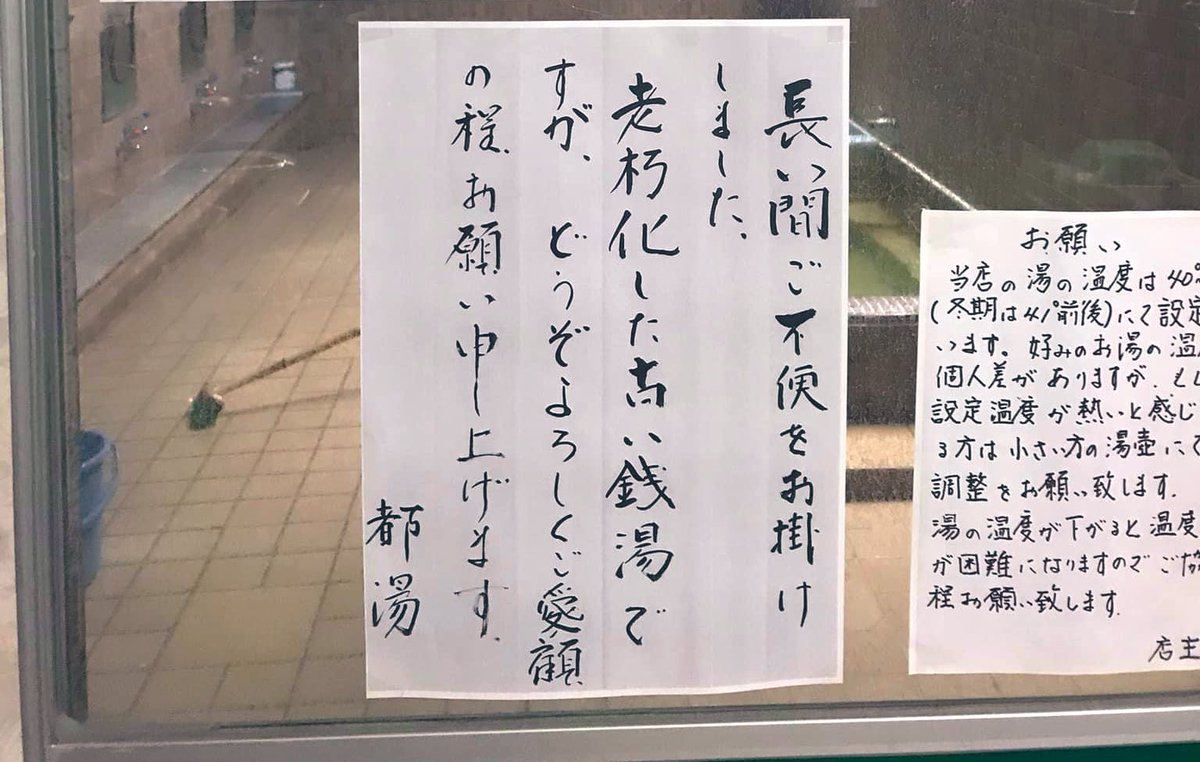 長い間ご不便をお掛け
しました、
老朽化した古い銭湯で
すが、どうぞよろしくご愛顧
の程、お願い申し上げます。
都湯
お願い
当店の湯の温度は40°
(冬期は41°前後)にて設定
います。好みのお湯の温
個人差がありますが、もし
設定温度が熱いと感じ
る方は小さい方の湯壷にて
調整をお願い致します。
湯の温度が下がると温度
が困難になりますのでご協
程お願い致します。
店主